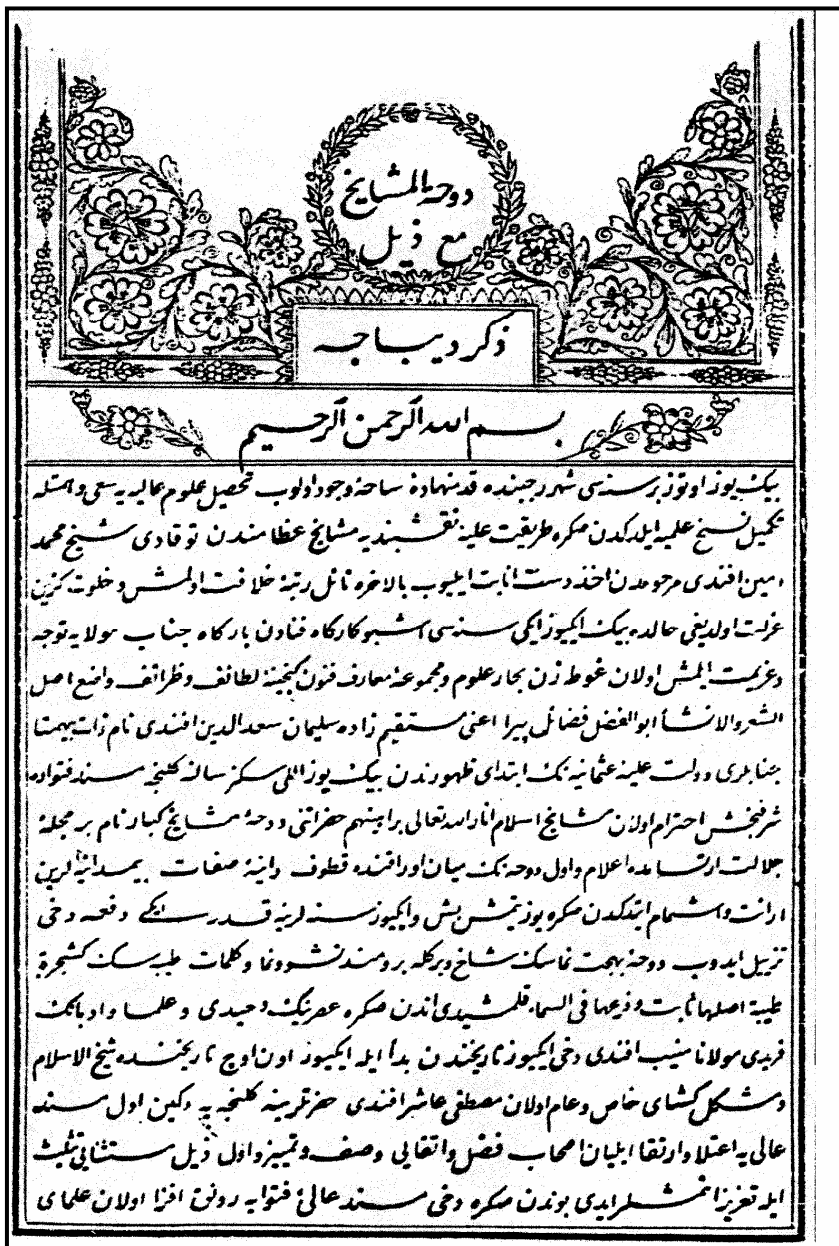 دوحة المشايخ
مع ذيل
ذكر ديباجه
بسم الله الرحمن الرحيم
بيك يوز اوتوز بر سنه‌سى شهر رجبنده قدمنهادۀ ساحۀ وجود اولوب تحصيل علوم عاليه‌يه سعى و همتله
تكميل نسخ علميه ايلدكدن صكره طريقت عليۀ نقشبنديه مشايخ عظامندن توقادى شيخ محمد
امين افندى مرحومدن اخذ دست انابت ايليوب بالاخره نائل رتبۀ خلافت اولمش و خلوت كزين
عزلت اولديغى حالده بيك ايكيوز ايكى سنه‌سى اشبو كاركاه فنادن باركاه جناب مولايه توجه
و عزيمت ايلمش اولان غوطه زن بحار علوم و مجموعۀ معارف فنون كنجينۀ لطائف و ظرائف واضع اصل
الشعر والانشأ ابوالفضل فضائل پيرا اعنى مستقيم زاده سليمان سعدالدين افندى نام ذات بيهمتا
جنابلرى دولت عليۀ عثمانيه‌نك ابتداى ظهورندن بيك يوز اللى سكز سالنه كلنجه مسند فتواده
شرفبخش احترام اولان مشايخ اسلام انار الله تعالى براهينهم حضراتنى دوحۀ مشايخ كبار نام بر مجلۀ
جلالت ارتسامده اعلام و اول دوحه‌نك ميان اوراقنده قطوف دانيۀ صفات
ارائت و اشمام ايتدكدن صكره يوز يتمش بش و ايكيوز سنه‌لرينه قدر ايكى دفعه دخى
تزييل ايدوب دوحۀ بهجت نماسنك شاخ و بركله برومند نشو و نما و كلمات طيبه‌سنك كشجرة
طيبة اصلها ثابت و فرعها فى السماء قلمشيدى اندن صكره عصرينك وحيدى و علما و ادبانك
فريدى مولانا منيب افندى دخى ايكيوز تاريخندن بدأ ايله ايكيوز اون اوچ تاريخنده شيخ الاسلام
و مشكل كشاى خاص و عام اولان مصطفى عاشر افندى حضرتلرينه كلنجه‌يه دكين اول مسند
عالى‌يه اعتلا و ارتقا ايليان اصحاب فضل و اتقايى وصف و تمييز و اول ذيل
ايله تعزيز ايتمشلر ايدى بوندن صكره دخى مسند عالئ فتوايه رونق افزا اولان علماى